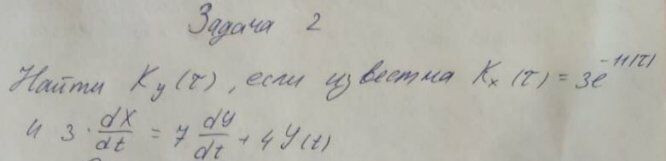 Задача 2
Найти Kу(τ), если известна Kx(τ) = 3e^-11|τ|
и 3 · dX/dt = 7 dY/dt + 4Y(t)